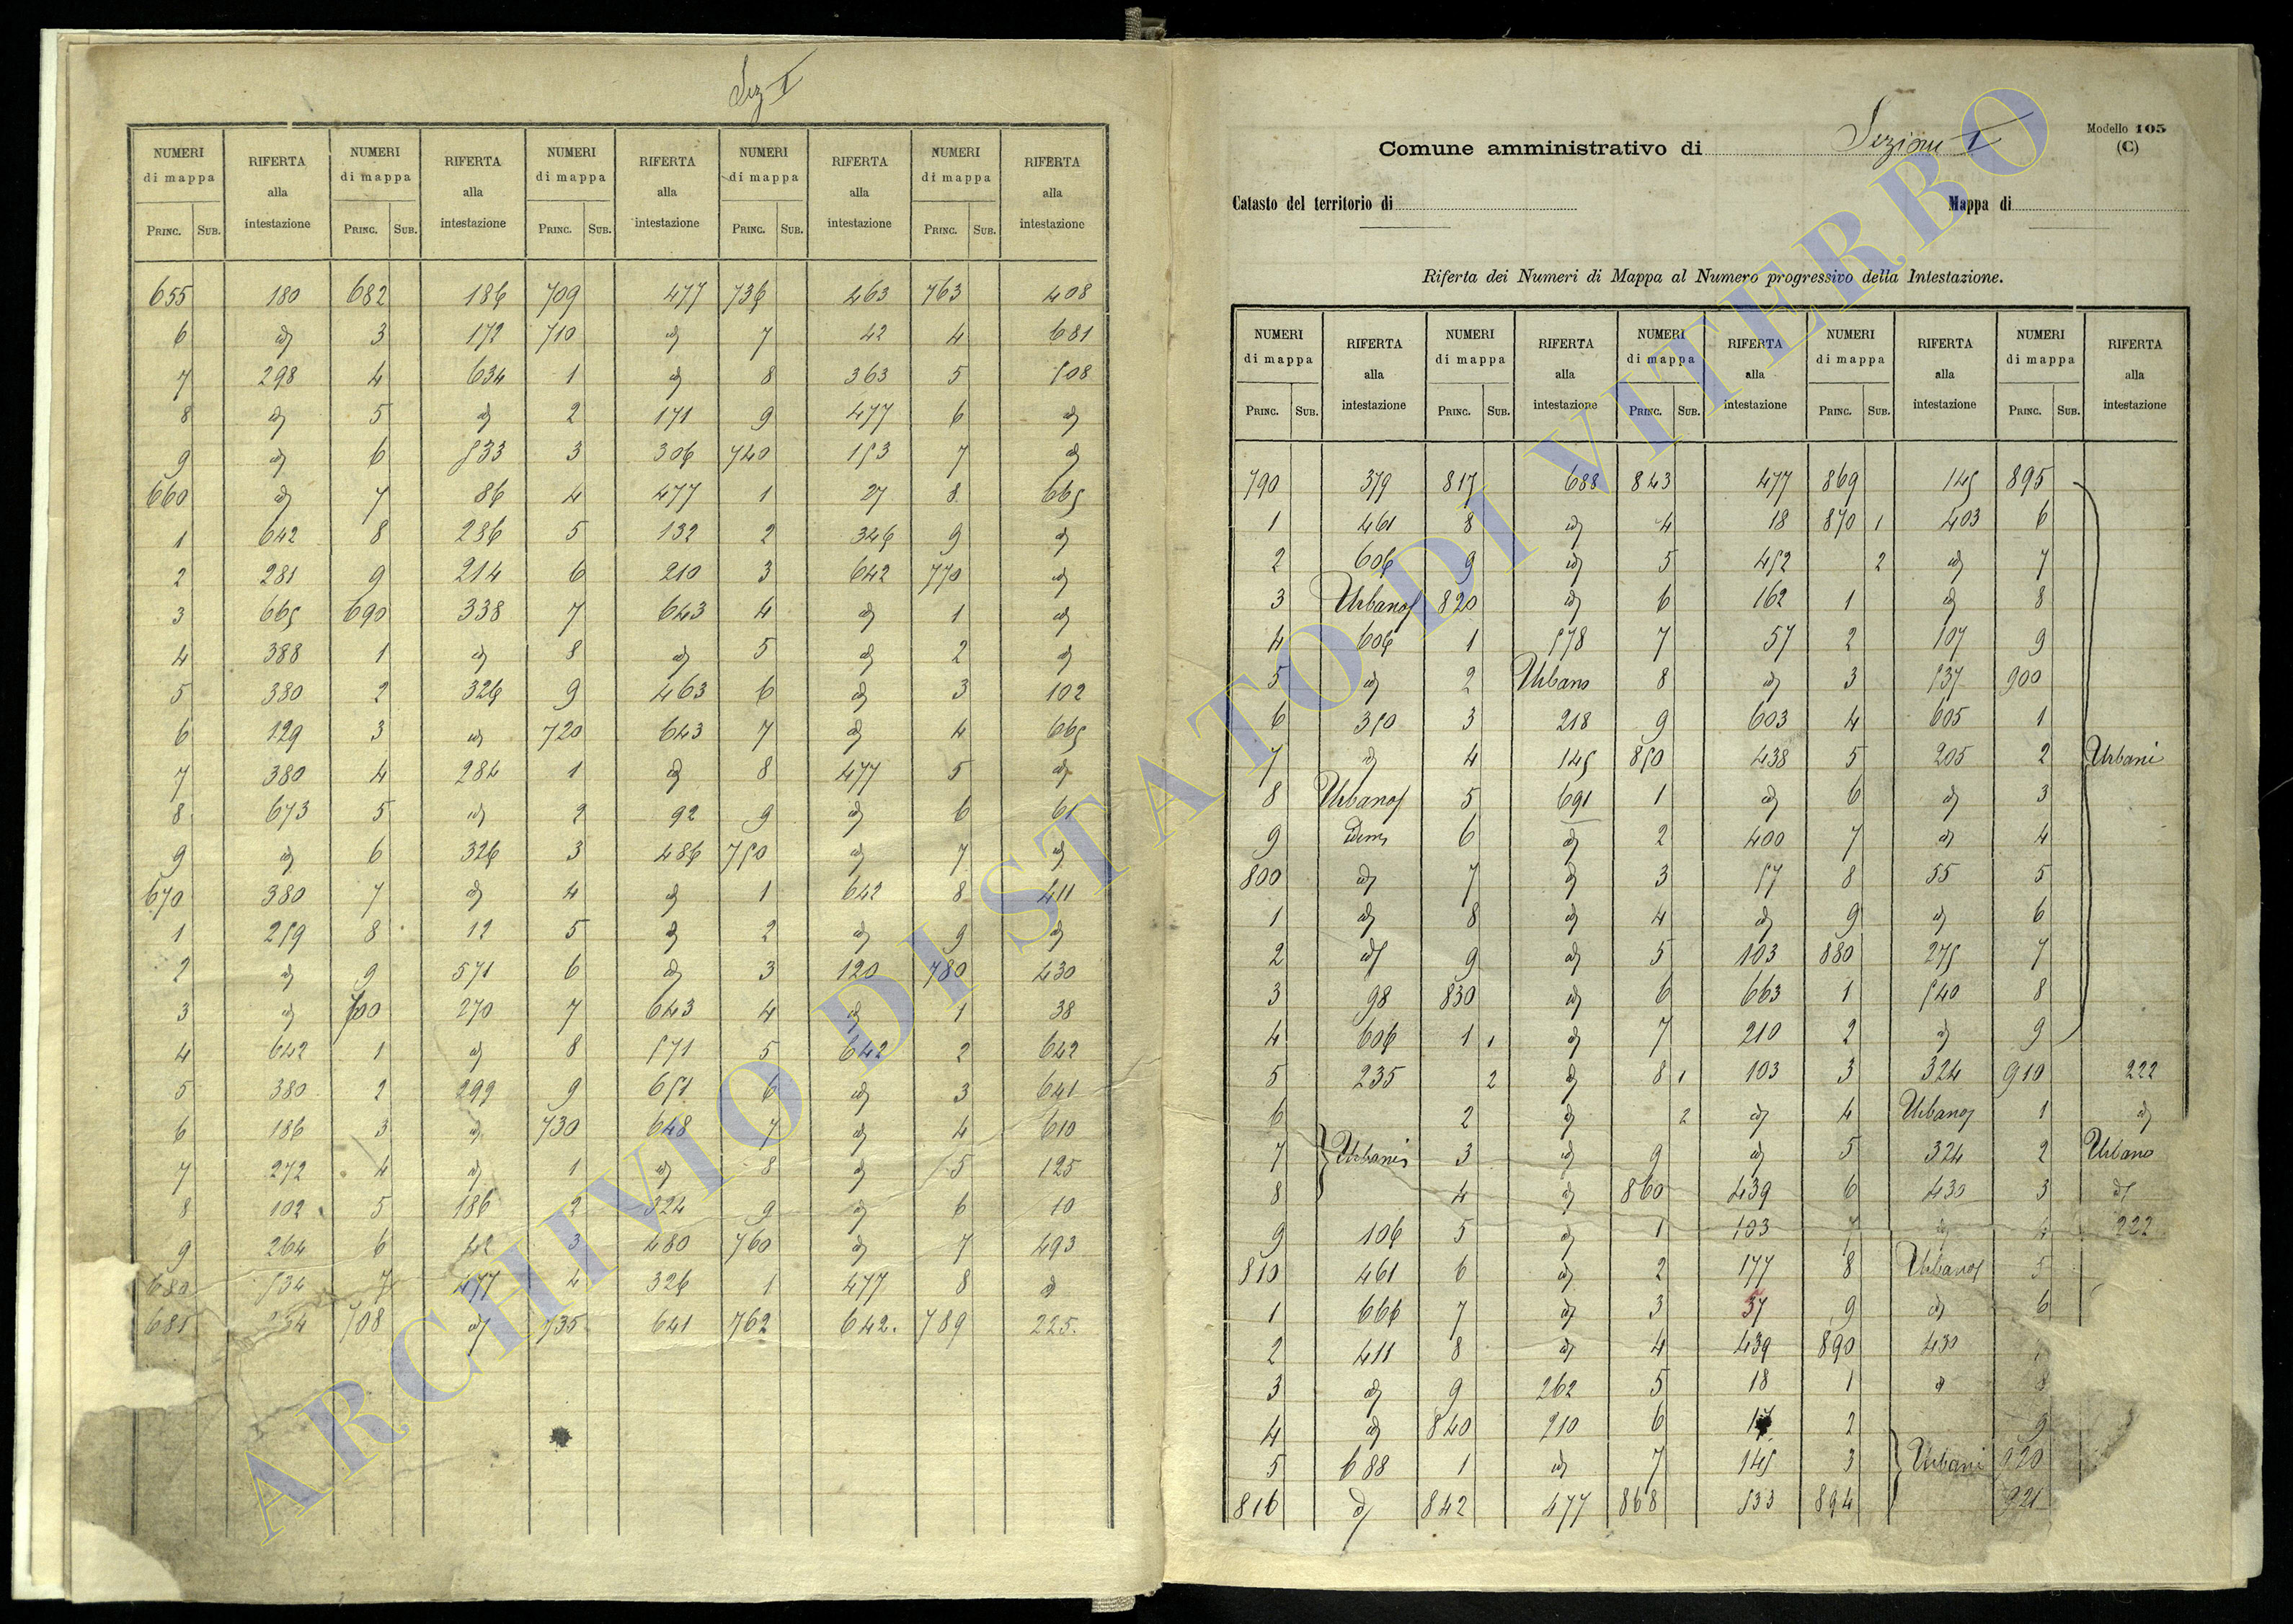 Sez I
NUMERI di mappa RIFERTA alla intestazione NUMERI di mappa RIFERTA alla intestazione NUMERI di mappa RIFERTA alla intestazione NUMERI di mappa RIFERTA alla intestazione NUMERI di mappa RIFERTA alla intestazione
PRINC. SUB. PRINC. SUB. PRINC. SUB. PRINC. SUB. PRINC. SUB.
655 180 682 186 709 477 736 463 763 408
6 id 3 172 710 id 7 42 4 681
7 298 4 634 1 id 8 363 5 508
8 id 5 id 2 171 9 477 6 id
9 id 6 533 3 306 740 153 7 id
660 id 7 86 4 477 1 27 8 665
1 642 8 286 5 132 2 346 9 id
2 281 9 214 6 210 3 642 770 id
3 665 690 338 7 643 4 id 1 id
4 388 1 id 8 id 5 id 2 id
5 380 2 326 9 463 6 id 3 102
6 129 3 id 720 643 7 id 4 665
7 380 4 284 1 id 8 477 5 id
8 673 5 id 2 92 9 id 6 61
9 id 6 326 3 486 750 id 7 id
670 380 7 id 4 id 1 642 8 411
1 259 8 12 5 id 2 id 9 id
2 id 9 571 6 id 3 120 780 430
3 id 700 270 7 643 4 id 1 38
4 642 1 id 8 571 5 642 2 642
5 380 2 299 9 651 6 id 3 641
6 186 3 id 730 648 7 id 4 610
7 272 4 id 1 id 8 id 5 125
8 102 5 186 2 324 9 id 6 10
9 264 6 42 3 480 760 id 7 493
680 534 7 477 4 326 1 477 8 id
681 708 id 735 641 762 642. 789 225.
Modello 105
(C)
Comune amministrativo di Sezione I
Catasto del territorio di Mappa di
Riferta dei Numeri di Mappa al Numero progressivo della Intestazione.
NUMERI di mappa RIFERTA alla intestazione NUMERI di mappa RIFERTA alla intestazione NUMERI di mappa RIFERTA alla intestazione NUMERI di mappa RIFERTA alla intestazione NUMERI di mappa RIFERTA alla intestazione
PRINC. SUB. PRINC. SUB. PRINC. SUB. PRINC. SUB. PRINC. SUB.
790 379 817 688 843 477 869 145 895
1 461 8 id 4 18 870 1 403 6
2 606 9 id 5 452 2 id 7
3 Urbano 820 id 6 162 1 id 8
4 606 1 578 7 57 2 107 9
5 id 2 Urbano 8 id 3 537 900
6 350 3 218 9 603 4 605 1
7 id 4 145 850 438 5 205 2 Urbani
8 Urbano 5 691 1 id 6 id 3
9 idem 6 id 2 400 7 id 4
800 id 7 id 3 57 8 55 5
1 id 8 id 4 id 9 id 6
2 id 9 id 5 103 880 275 7
3 98 830 id 6 663 1 540 8
4 606 1 1 id 7 210 2 id 9
5 235 2 id 8 1 103 3 324 910 222
6 2 id 2 id 4 Urbano 1 id
7 Urbani 3 id 9 id 5 324 2 Urbano
8 4 id 860 439 6 430 3 id
9 106 5 id 1 103 7 id 4 222
810 461 6 id 2 177 8 Urbano 5
1 666 7 id 3 37 9 id 6
2 411 8 id 4 439 890 430
3 id 9 262 5 18 1 id 8
4 id 840 210 6 2 9
5 688 1 id 7 145 3 Urbani 920
816 id 842 477 868 533 894 921
ARCHIVIO DI STATO DI VITERBO